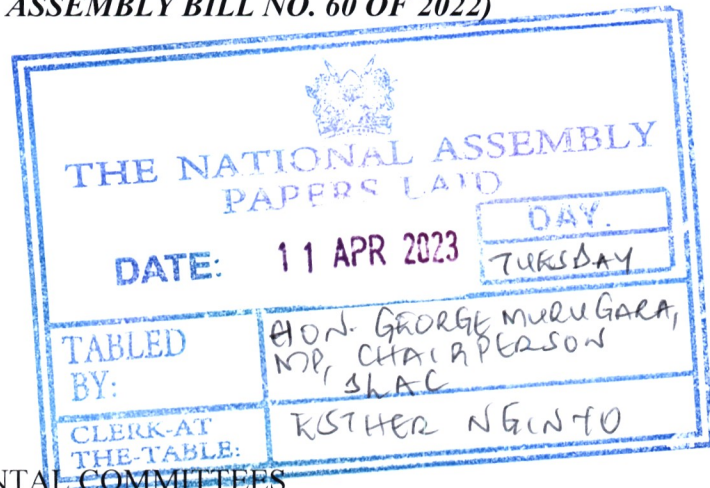 ASSEMBLY BILL NO. 60 OF 2022)
THE NATIONAL ASSEMBLY
PAPERS LAID
DATE: 11 APR 2023
DAY.
TUESDAY
TABLED BY:
HON. GEORGE MURUGARA,
MP, CHAIRPERSON
JLAC
CLERK-AT THE-TABLE:
ESTHER NGINYO
NTAL COMMITTEES